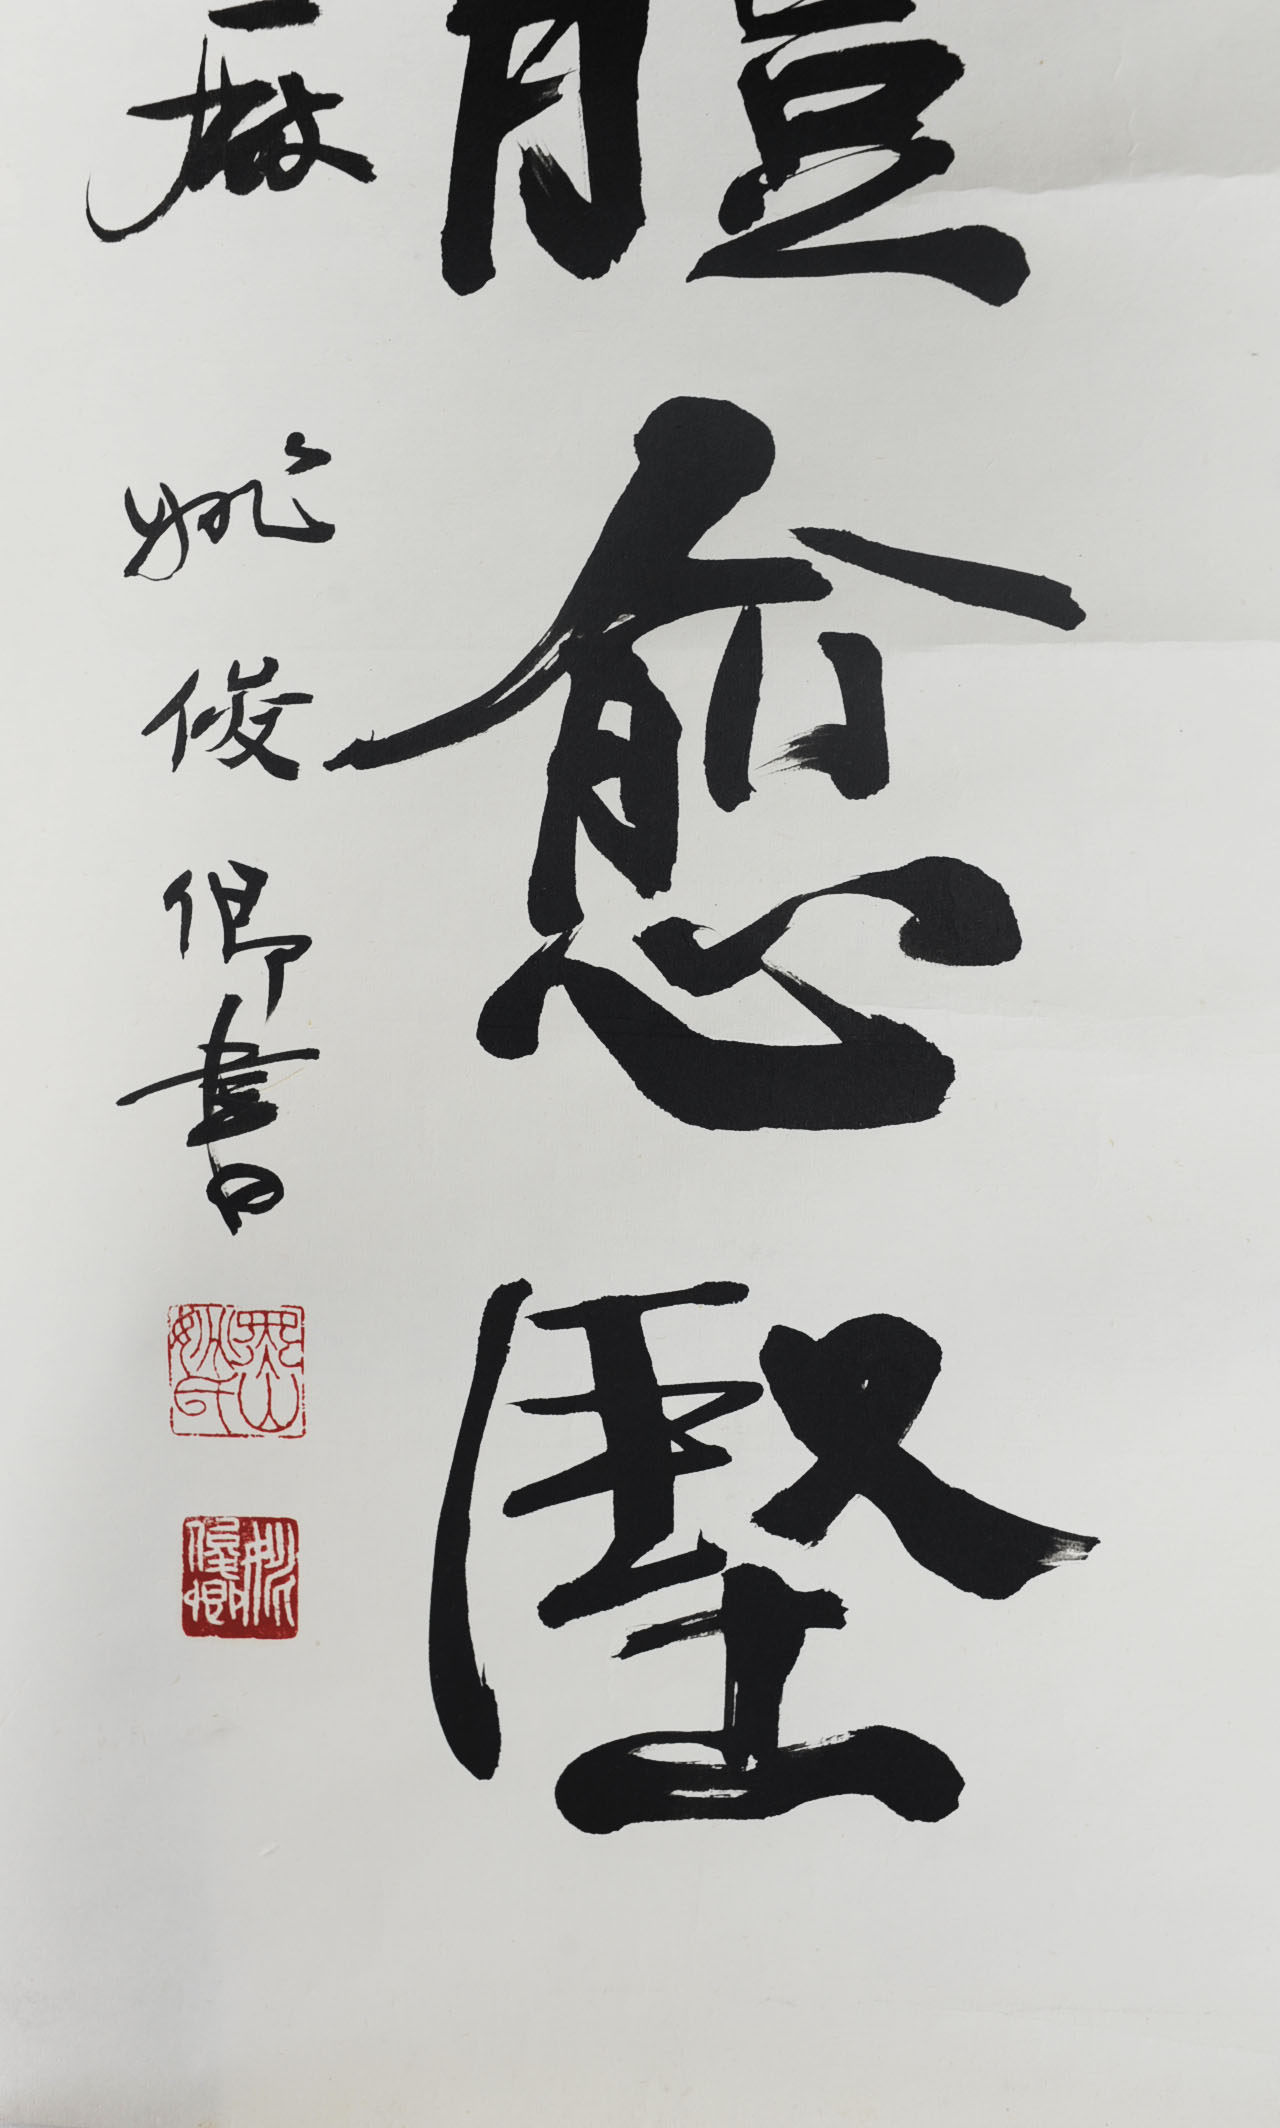 體愈堅
姚俊卿書